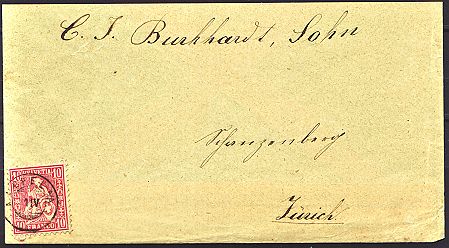 C. J. Burkhardt, Sohn
Schanzenberg
Zürich
HELVETIA
10 10
10 FRANCO 10
IV